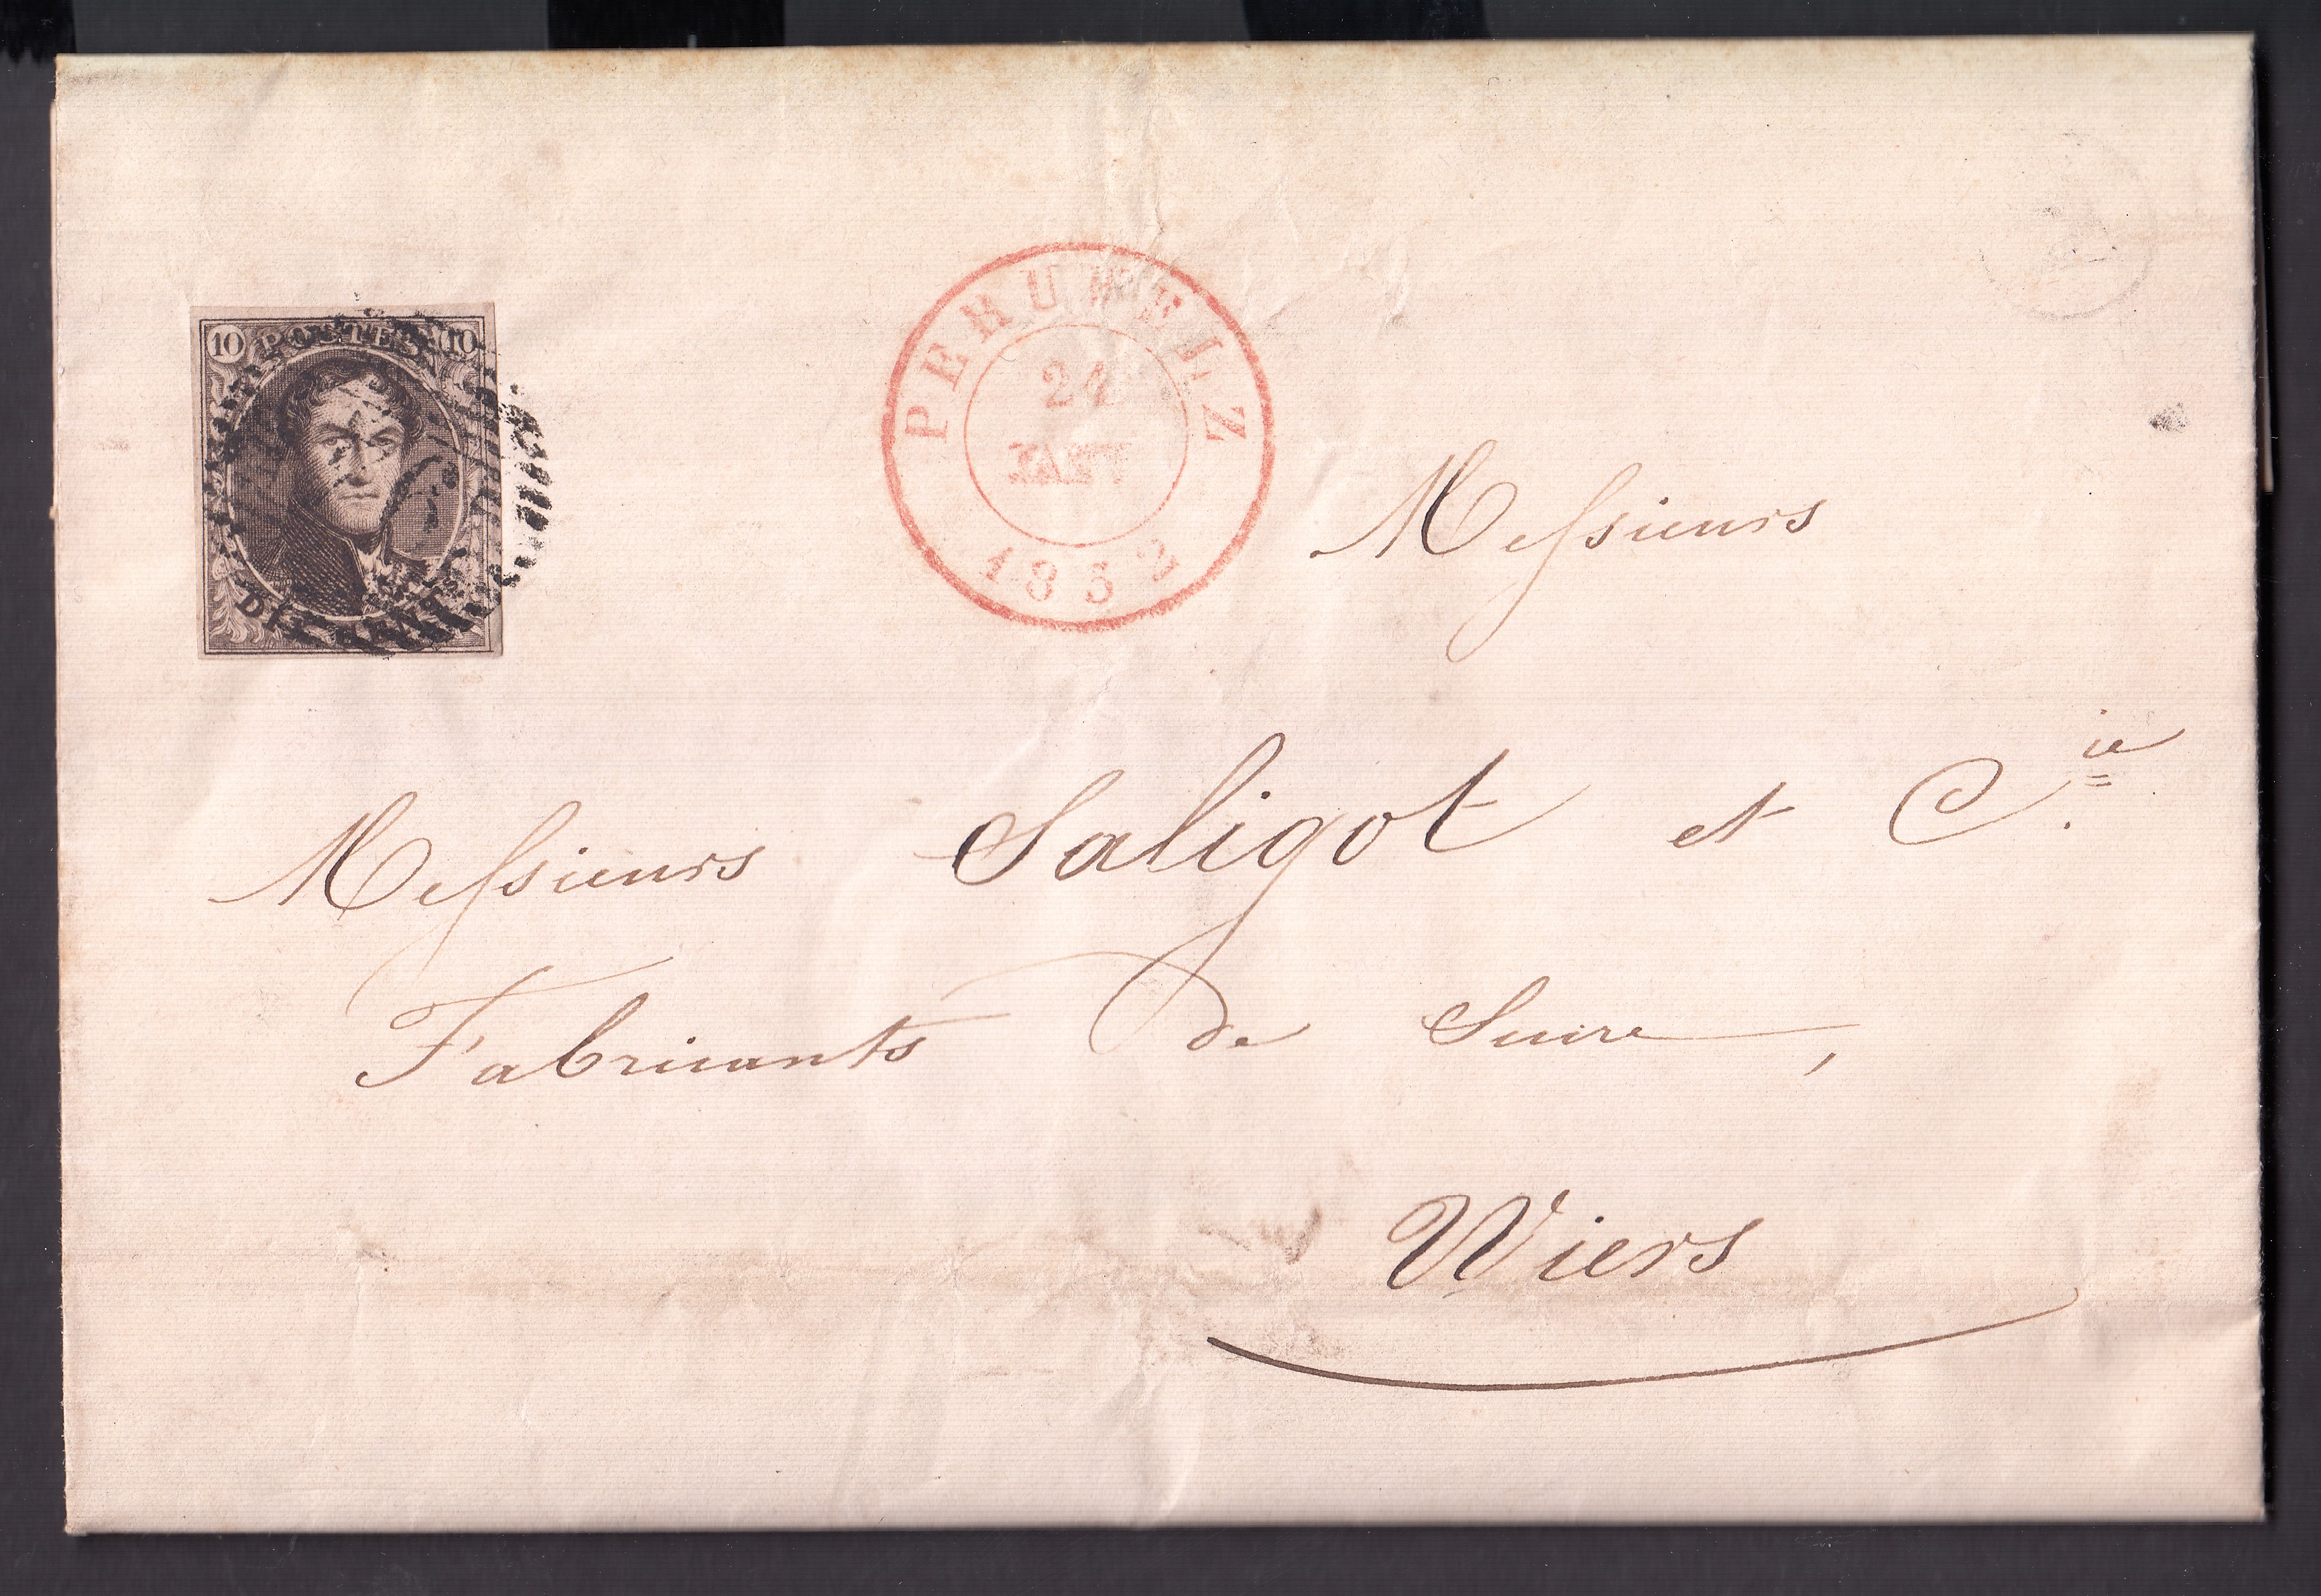 10 POSTES 10
DIX CENTS
PERUWELZ
24
JANV
1852
Messieurs
Messieurs Saligot et Cie.
Fabricants de Sucre,
Wiers